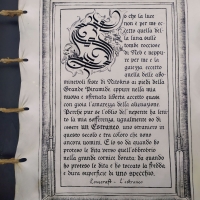 So che la luce
non è per me ec
cetto quella del
la luna sulle
tombe rocciose
di Neb e neppu
re per me e la
gaiezza, eccetto
quella delle abo
minevoli feste di Nitokris ai piedi della
Grande Piramide eppure nella mia
nuova e sfrenata libertà accetto quasi
con gioia l'amarezza dell'alienazione.
Perché pur se l'oblio del nepente ha leni
to la mia sofferenza, ugualmente so di
essere un Estraneo uno straniero in
questo secolo e tra coloro che sono
ancora uomini. E io so da quando ho
proteso le dita verso quell'abbrobrio
nella grande cornice dorata, da quando
ho proteso le dita e ho toccato la fredda
e dura superficie di uno specchio.
Lovecraft - L'estraneo